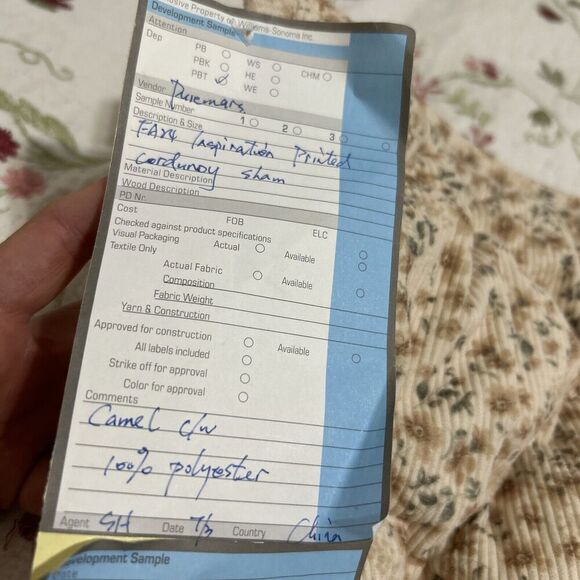 Property of Williams-Sonoma Inc.
Development Sample
Attention
Dep PB WS CHM
PBK HE
PBT ✓ WE
Vendor Duremars
Sample Number 1 2 3
Description & Size
Printed
corduroy sham
Material Description
Wood Description
PD Nr.
FOB ELC
Cost
Checked against product specifications
Visual Packaging Actual Available
Textile Only
Actual Fabric Available
Composition
Fabric Weight
Yarn & Construction
Approved for construction
All labels included Available
Strike off for approval
Color for approval
Comments
Camel c/w
100% polyester
Agent SH Date 7/3 Country China
Development Sample